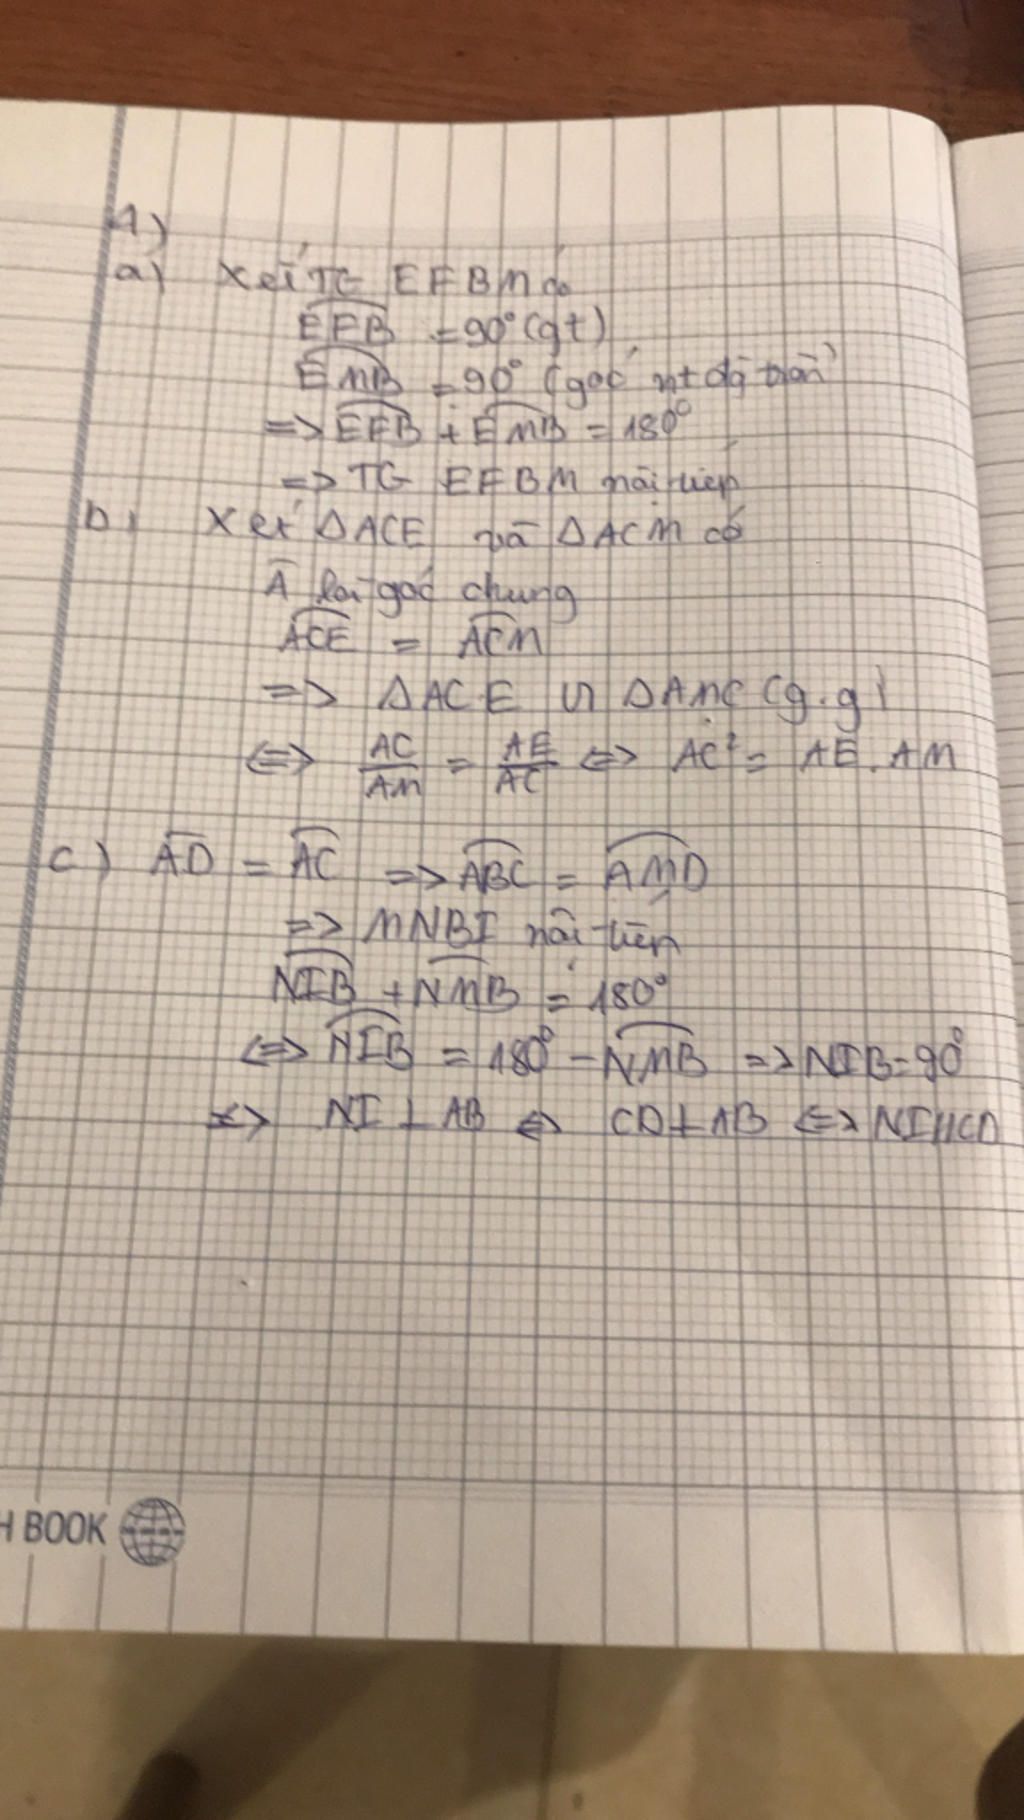 1)
a) Xét TG EFBM có
EFB = 90° (gt)
EMB = 90° (góc nt đg tròn)
=> EFB + EMB = 180°
=> TG EFBM nội tiếp
b, Xét ΔACE và ΔACM có
A là góc chung
ACE = ACM
=> ΔACE ∽ ΔAMC (g.g)
<=> AC/AM = AE/AC <=> AC² = AE.AM
c) AD = AC => ABC = AMD
=> MNBI nội tiếp
NIB + NMB = 180°
<=> NIB = 180° - NMB => NIB = 90°
=> NI ⊥ AB <=> CD ⊥ AB <=> NI // CD
H BOOK